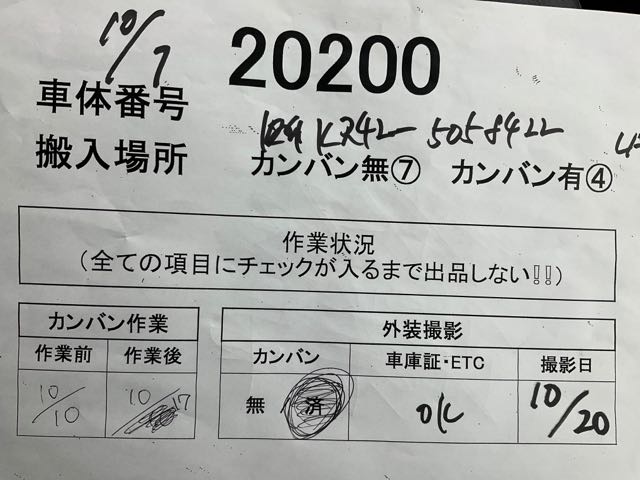 10/7
20200
車体番号
KR42-5058422
搬入場所 カンバン無⑦ カンバン有④
作業状況
(全ての項目にチェックが入るまで出品しない!!)
カンバン作業
作業前 作業後
10/10 10/17
外装撮影
カンバン 車庫証・ETC 撮影日
無 済 OK 10/20